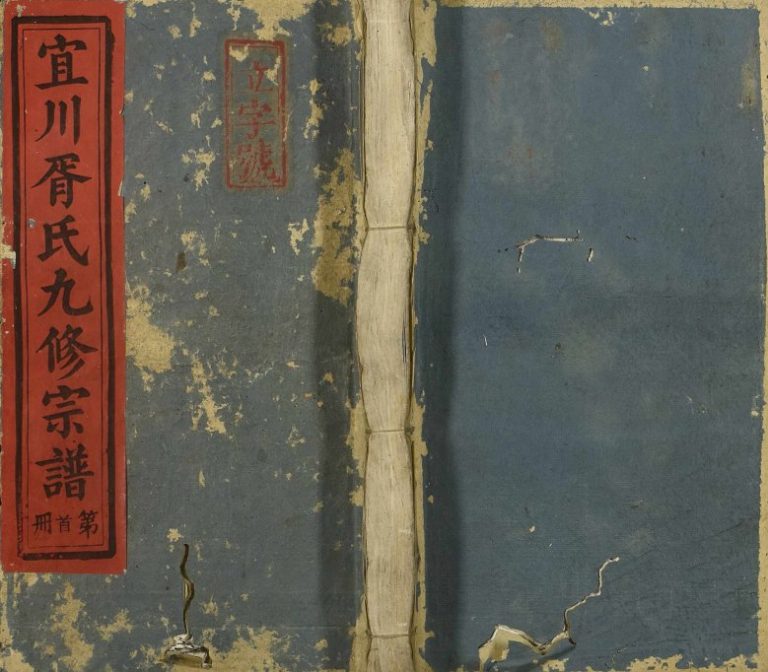 宜川胥氏九修宗譜
第首冊
立字號